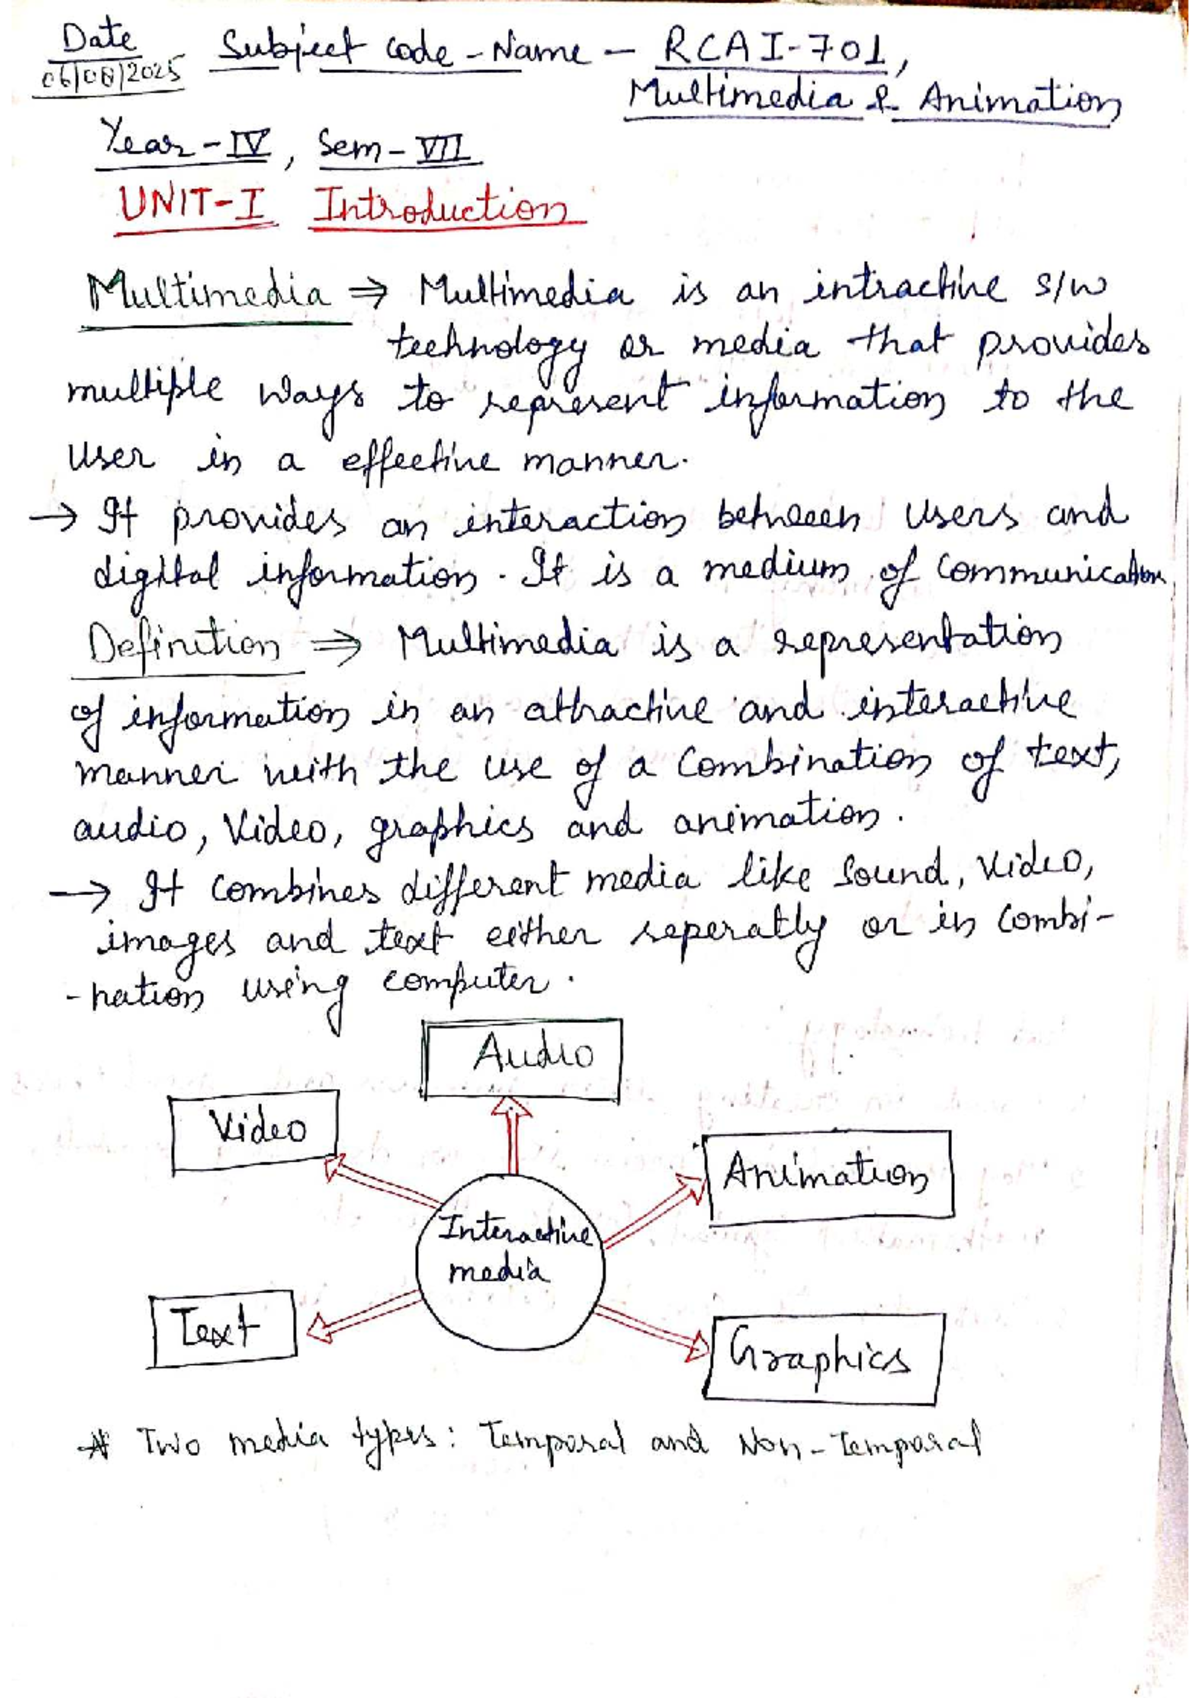 Date
06/08/2025
Subject code - Name - RCAI-701,
Multimedia & Animation
Year-IV, Sem-VII
UNIT-I Introduction
Multimedia ⇒ Multimedia is an intractive s/w
technology or media that provides
multiple ways to represent information to the
user in a effective manner.
→ It provides an interaction between users and
digital information. It is a medium of communication
Definition ⇒ Multimedia is a representation
of information in an attractive and interactive
manner with the use of a combination of text,
audio, Video, graphics and animation.
→ It combines different media like sound, video,
images and text either seperatly or in combi-
-nation using computer.
Audio
Video
Animation
Interactive
media
Text
Graphics
* Two media types: Temporal and Non-Temporal